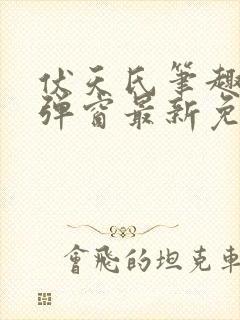 伏天氏筆趣
彈窗最新免
會飛的坦克車